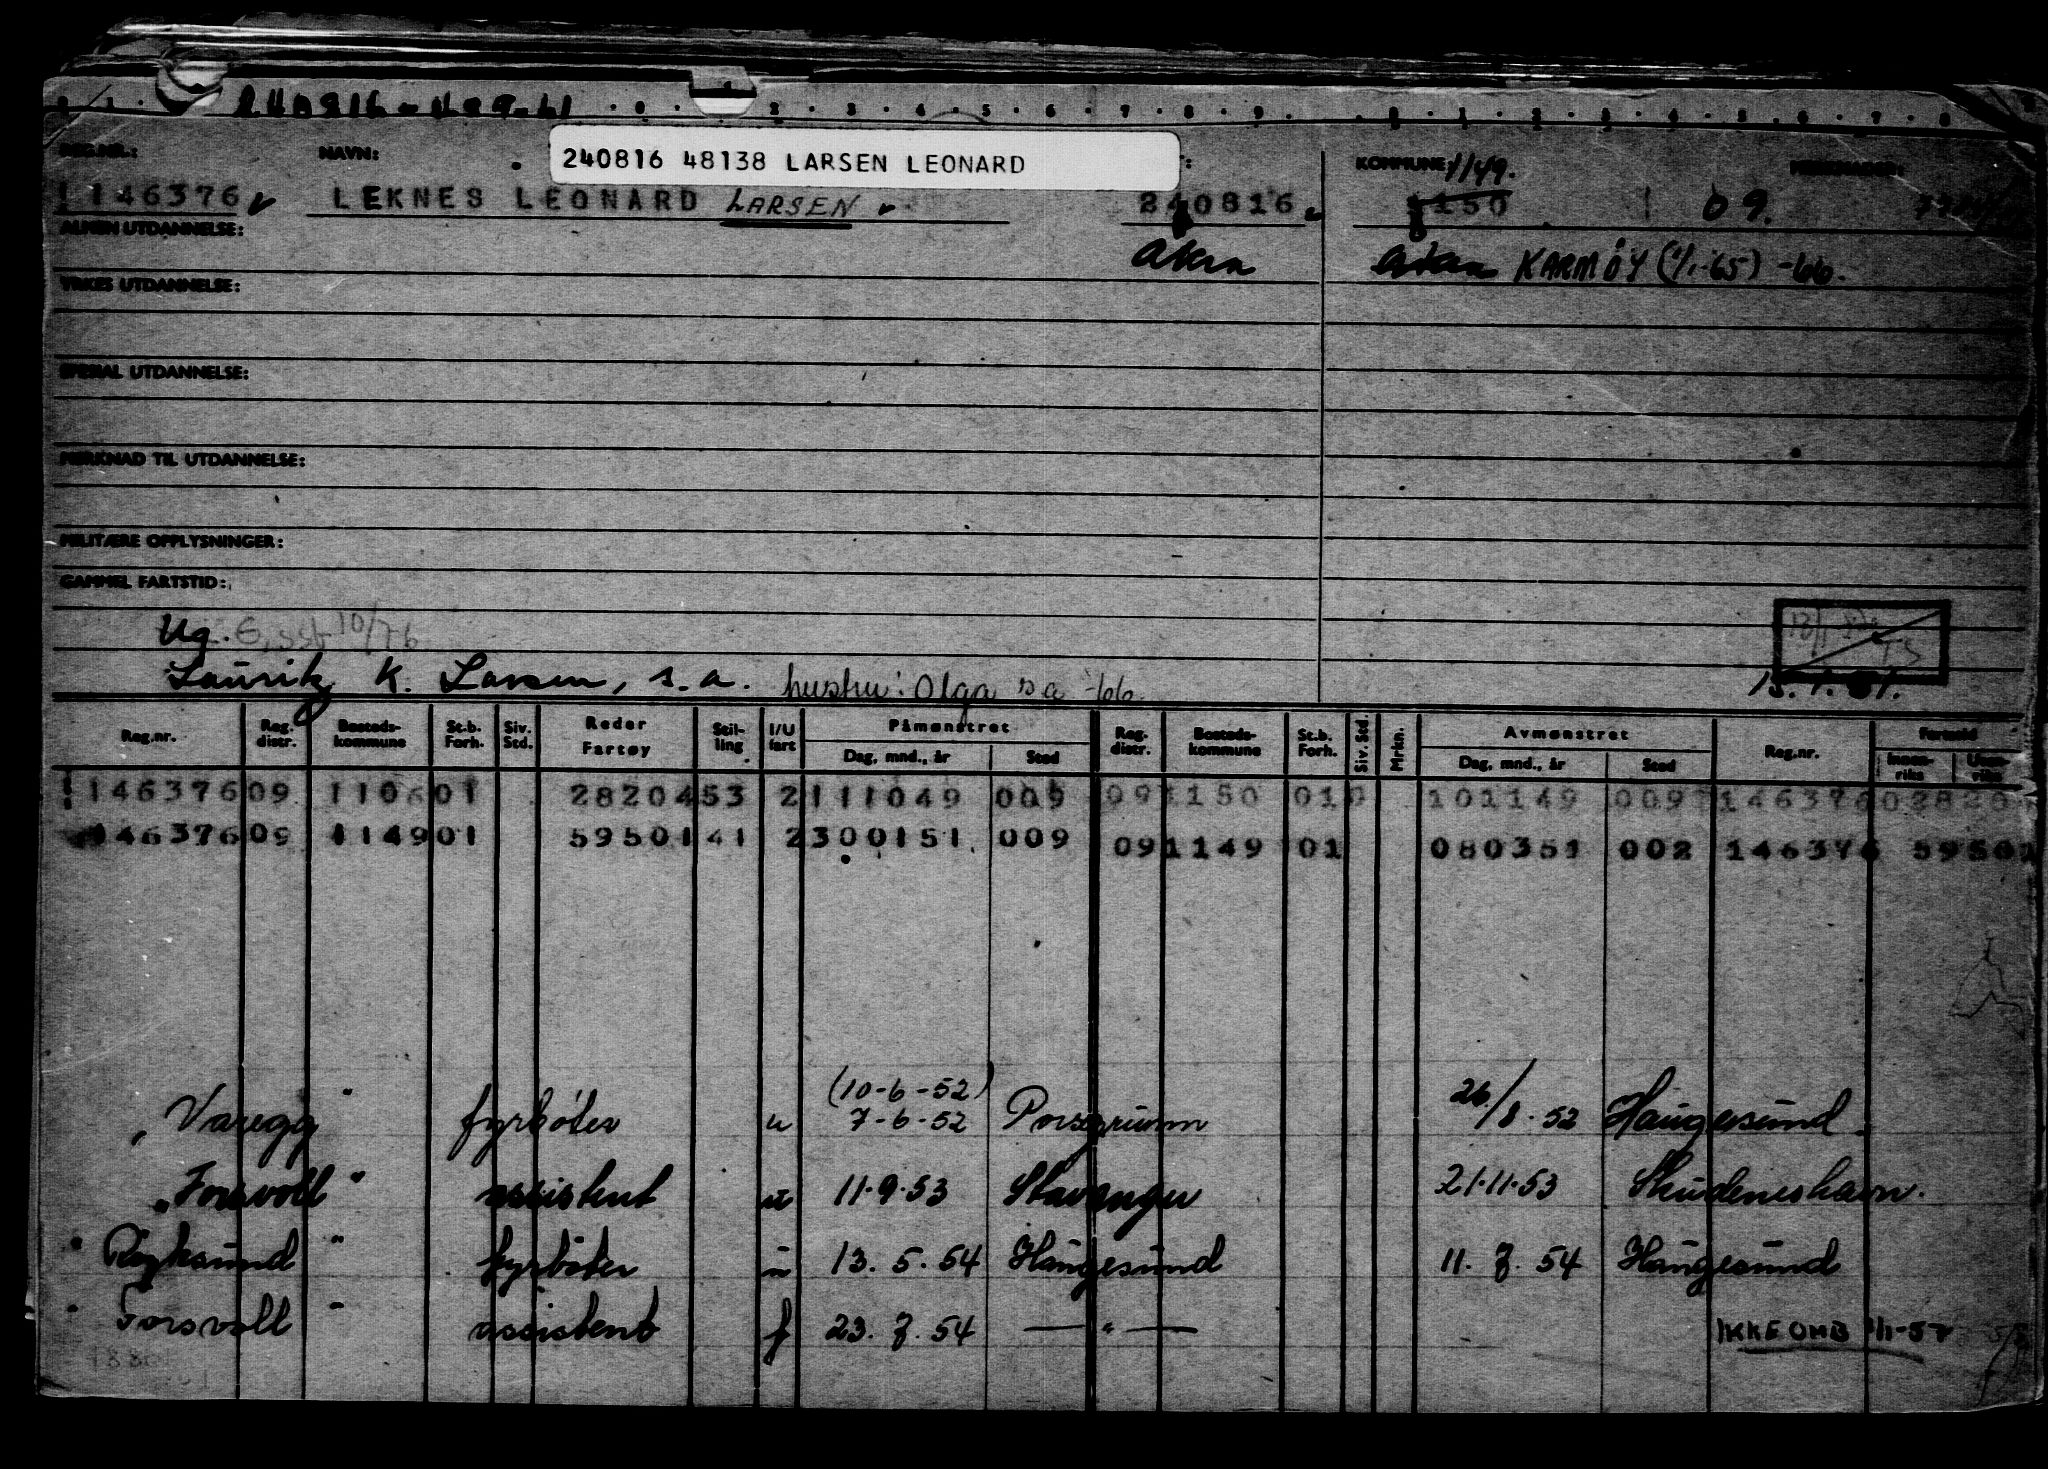 240816
0 . 2 . 3 . 4 . 5 . 6 . 7 . 8 . 9 . 0 . 1 . 2 . 3 . 4 . 5 . 6 . 7 . 8
240816 48138 LARSEN LEONARD
REG.NR.: NAVN: KOMMUNE: 1149.
146376 LEKNES LEONARD LARSEN 240816 1150 09.
ALMEN UTDANNELSE:
Åkra Åkra KARMÖY (1/1-65) -66.
YRKES UTDANNELSE:
SPESIAL UTDANNELSE:
MERKNAD TIL UTDANNELSE:
MILITÆRE OPPLYSNINGER:
GAMMEL FARTSTID:
Ug. 10/76
Lauritz K. Larsen, s.a. hustru: Olga s a -66
Reg.nr. Reg. distr. Bosteds-kommune St.b. Forh. Siv. Std. Reder Fartøy Stilling I/U fart Påmønstret Dag, mnd., år Sted Reg. distr. Bosteds-kommune St.b. Forh. Siv. Std. Mrkn. Avmønstret Dag, mnd., år Sted Reg.nr. Innen-riks Uten-riks
146376 09 1106 01 28204 53 2 111049 009 09 1150 01 0 101149 009 146376
146376 09 1149 01 59501 41 2 300151 009 09 1149 01 080351 002 146376 59501
(10-6-52)
"Varegg" fyrbøter u 7-6-52 Porsgrunn 26/8-52 Haugesund
"Torsvoll" assistent 11.9.53 Stavanger 21.11.53 Skudeneshavn.
"Røyksund" fyrbøter 13.5.54 Haugesund 11.7.54 Haugesund
"Torsvoll" assistent f 23.7.54 — " — IKKE OMB 1/1-57